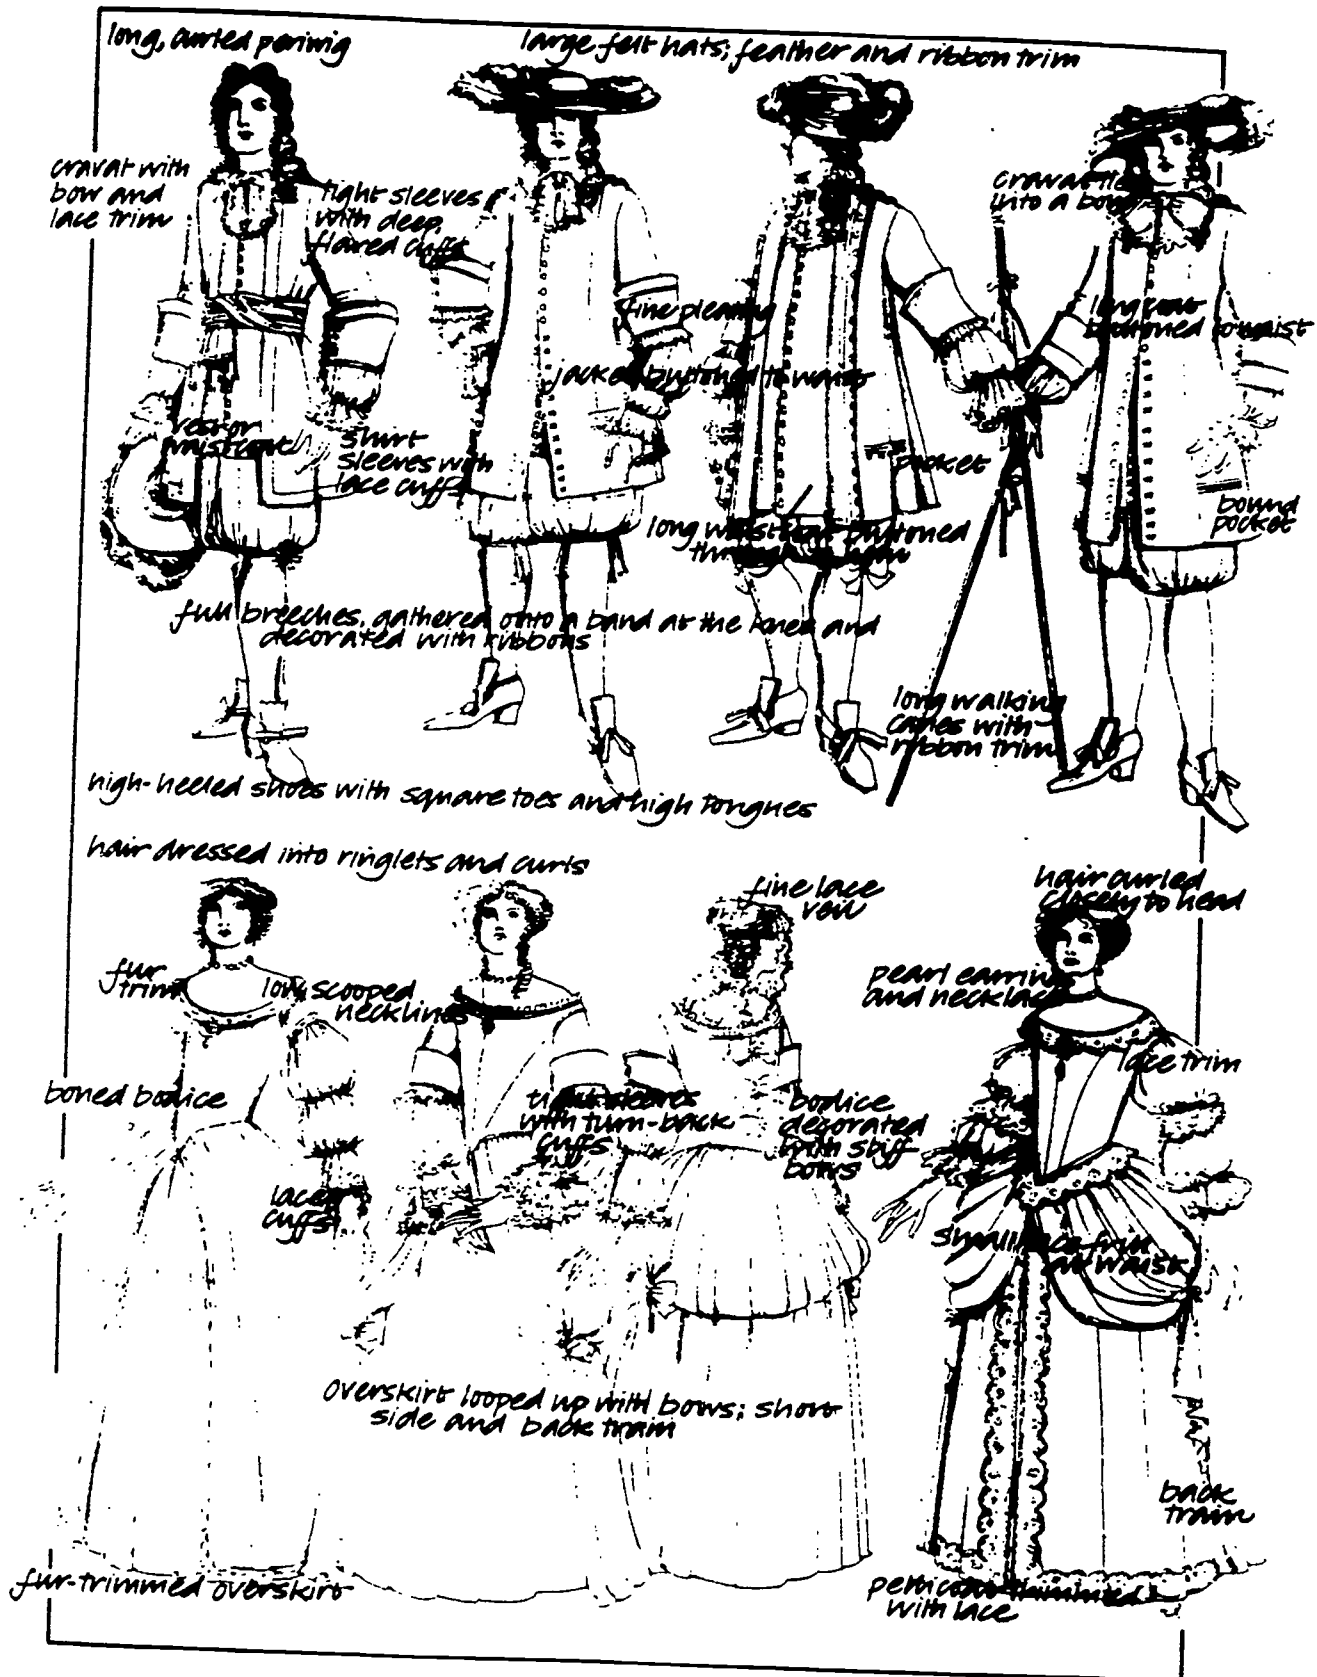 long, curled periwig
large felt hats; feather and ribbon trim
cravat with
bow and
lace trim
tight sleeves
with deep,
flared cuffs
cravat tied
into a bow
fine pleating
long coat
buttoned to waist
jacket buttoned to waist
vest or
waistcoat
shirt
sleeves with
lace cuffs
pocket
bound
pocket
long waistcoat buttoned
through to hem
full breeches, gathered onto a band at the knee and
decorated with ribbons
long walking
canes with
ribbon trim
high-heeled shoes with square toes and high tongues
hair dressed into ringlets and curls
fine lace
veil
hair curled
closely to head
fur
trim
low, scooped
necklines
pearl earrings
and necklace
lace trim
boned bodice
tight sleeves
with turn-back
cuffs
bodice
decorated
with stiff
bows
lace
cuffs
small lace frill
at waist
overskirt looped up with bows; short
side and back train
back
train
fur-trimmed overskirt
petticoat trimmed
with lace